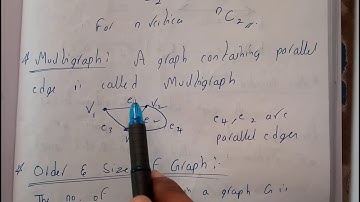 For n vertica ⁿC₂
* Multigraph: A graph containing parallel
edge is called Multigraph
V₁ V₂
e₃ e₂ e₄
e₄, e₂ are
parallel edges
* Order & Size of Graph:-
The no. of in a graph G is